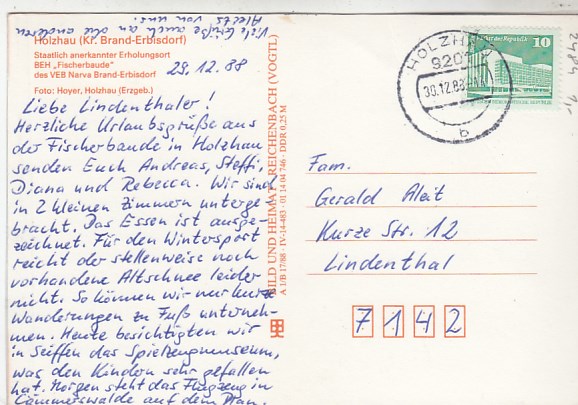 Viele Grüße auch an die anderen
Aleits von uns!
Holzhau (Kr. Brand-Erbisdorf)
Staatlich anerkannter Erholungsort
BEH „Fischerbaude"
des VEB Narva Brand-Erbisdorf
Foto: Hoyer, Holzhau (Erzgeb.)
29.12.88
Liebe Lindenthaler!
Herzliche Urlaubsgrüße aus
der Fischerbaude in Holzhau
senden Euch Andreas, Steffi,
Diana und Rebecca. Wir sind
in 2 kleinen Zimmern unterge-
bracht. Das Essen ist ausge-
zeichnet. Für den Wintersport
reicht der stellenweise noch
vorhandene Altschnee leider
nicht. So können wir nur kurze
Wanderungen zu Fuß unterneh-
men. Heute besichtigten wir
in Seiffen das Spielzeugmuseum,
was den Kindern sehr gefallen
hat. Morgen steht das Flugzeug in
Cämmerswalde auf dem Plan.
BILD UND HEIMAT REICHENBACH (VOGTL)
A 1/B 17/88 · IV-14-483 · 01 14 04 746 · DDR 0,25 M
HOLZHAU
9201
30.12.88
b
10
Fam.
Gerald Aleit
Kurze Str. 12
Lindenthal
7142
2484